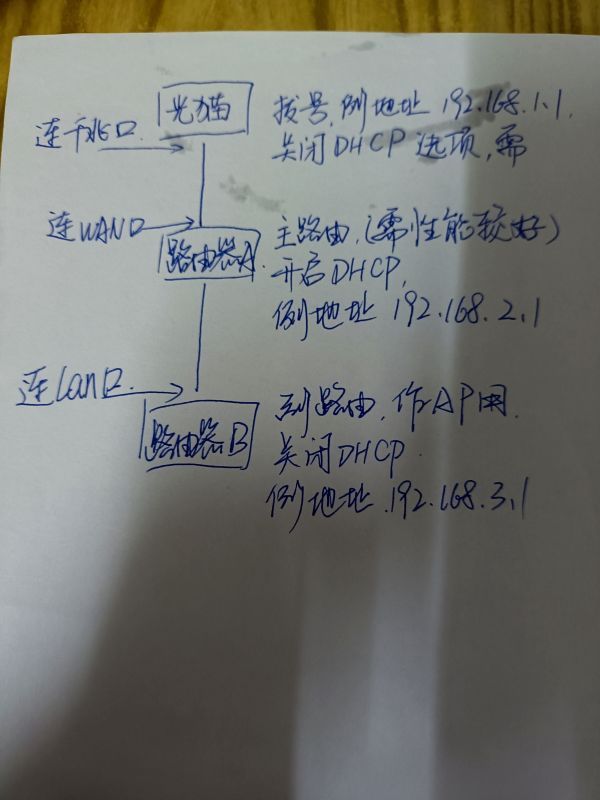 光猫
拨号,例地址 192.168.1.1.
连千兆口
关闭DHCP选项,需
连WAN口
路由器A
主路由,(需性能较好)
开启DHCP,
例地址 192.168.2.1
连Lan口.
路由器B
副路由,作AP用.
关闭DHCP.
例地址.192.168.3.1